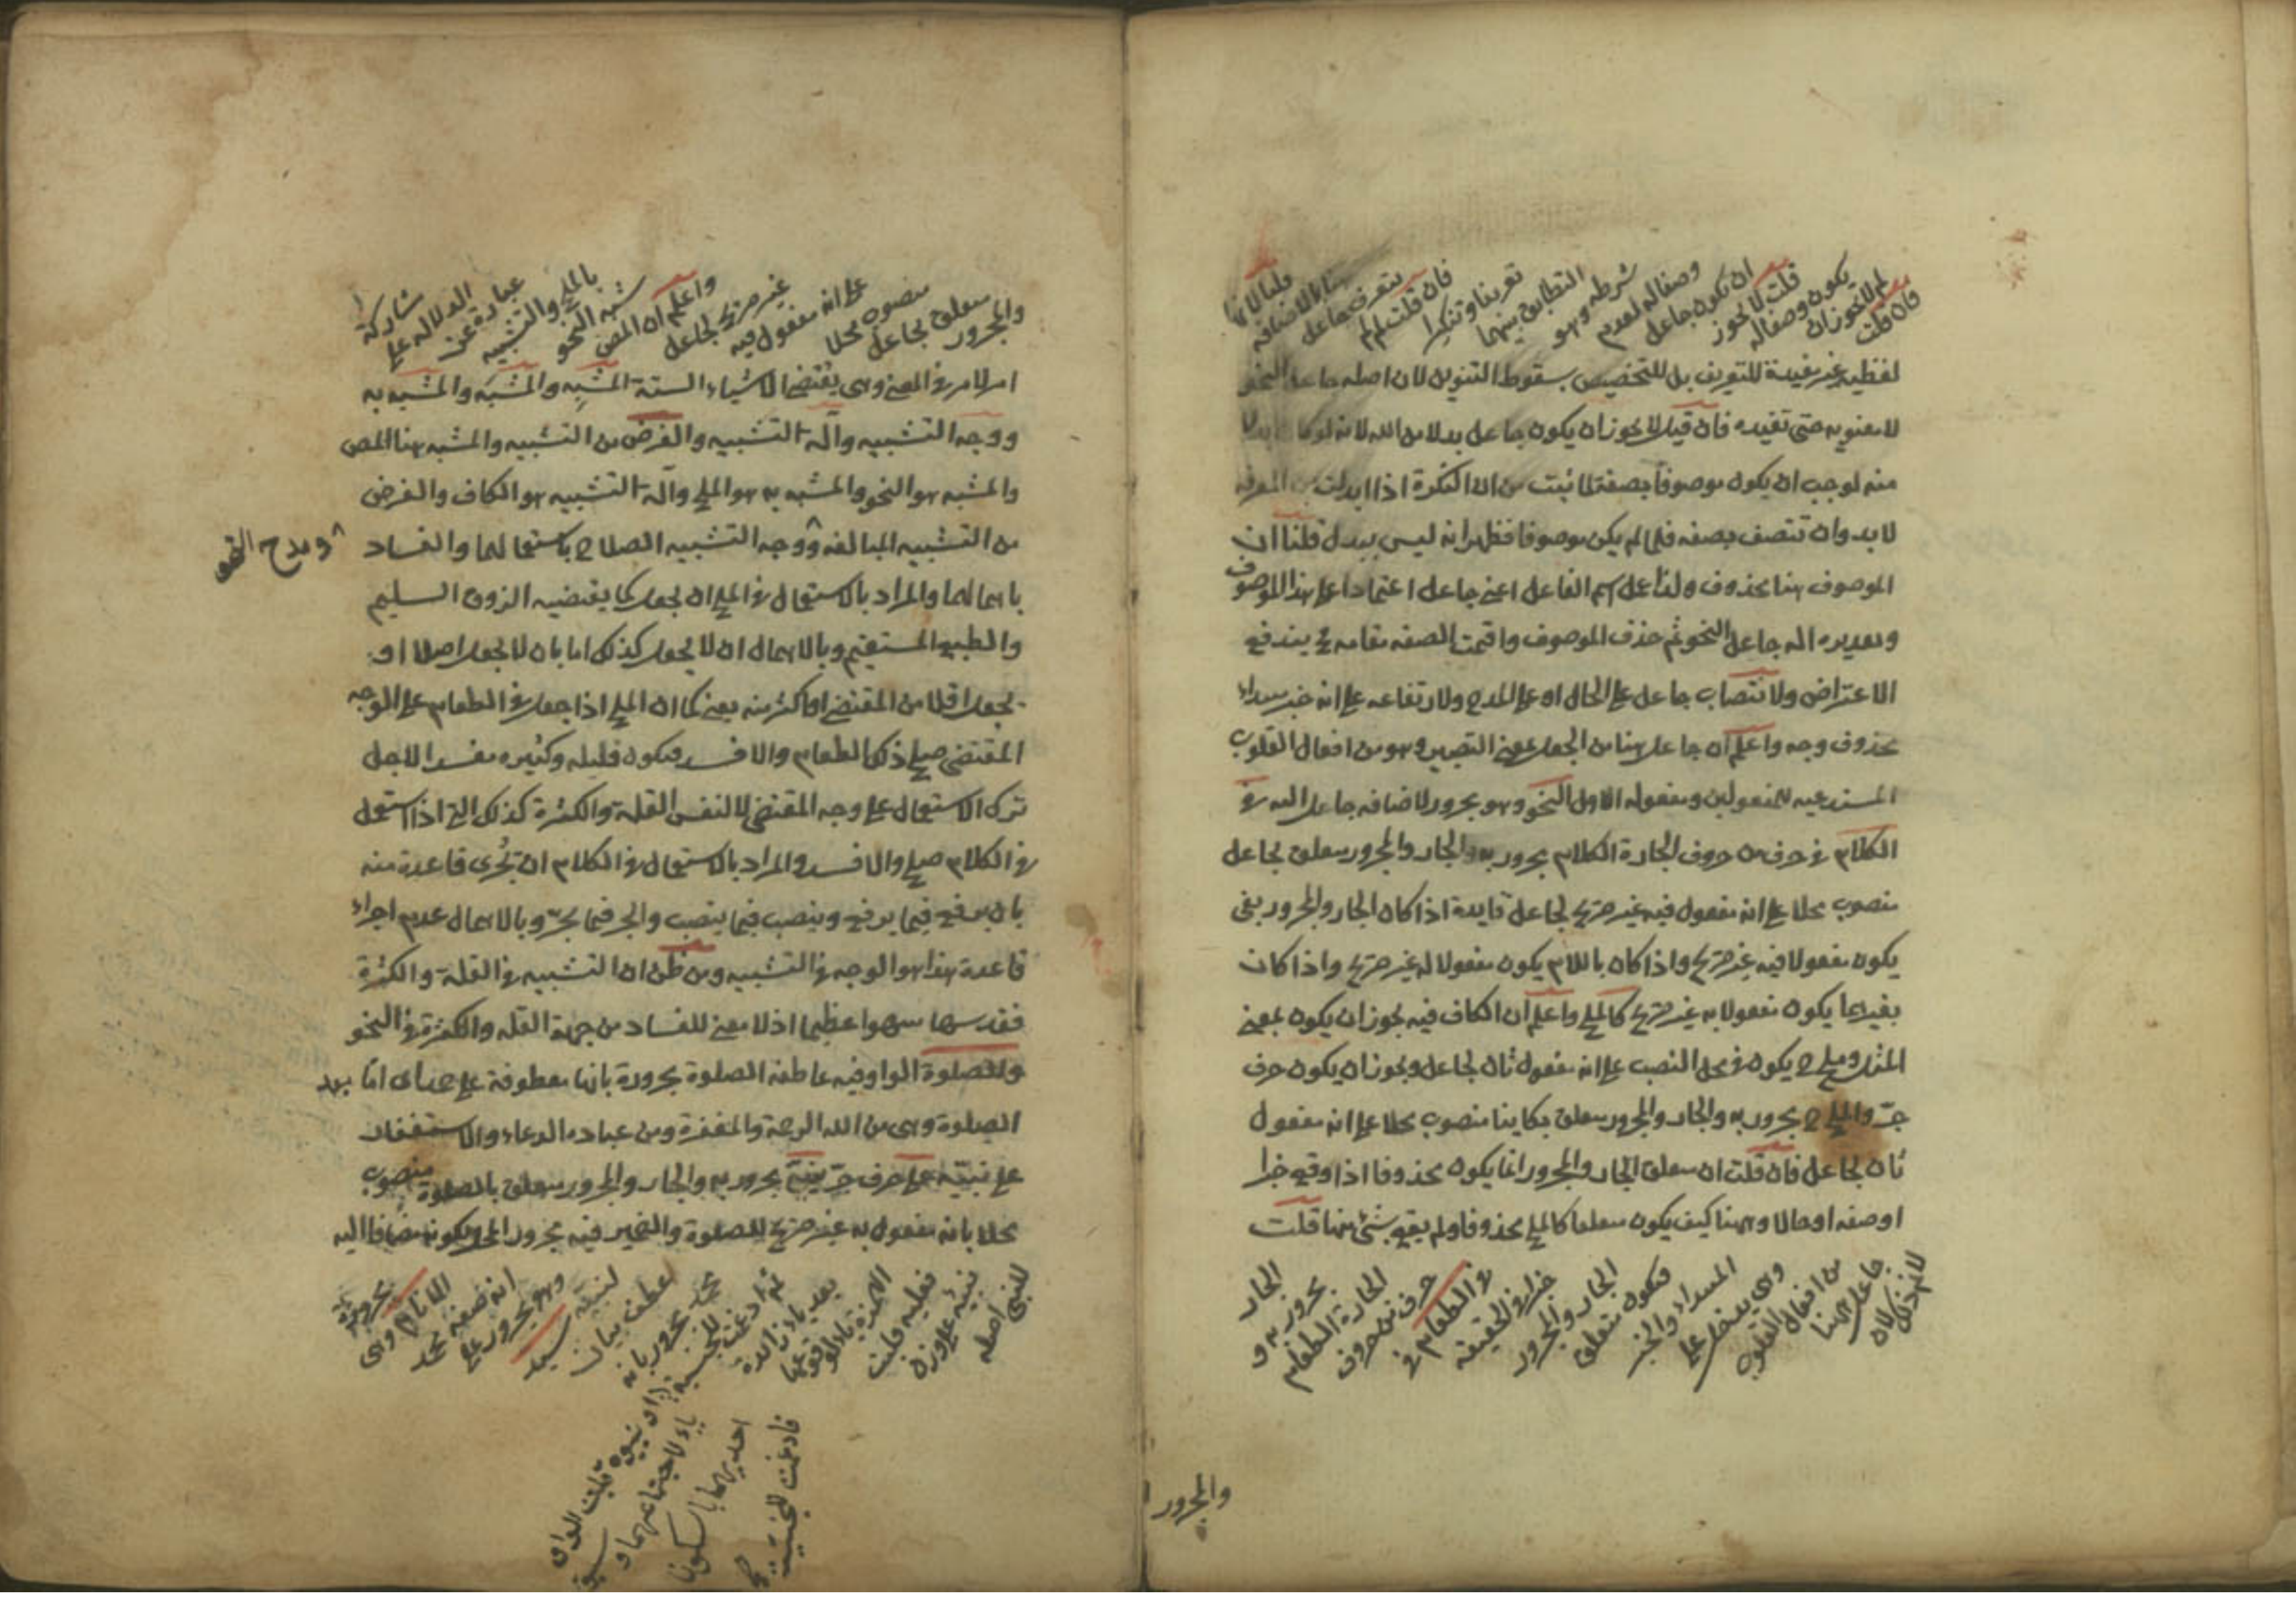 فان قلت
لم لا يجوز ان
يكون وصفا له
قلت لا يجوز
ان يكون جاعل
وصفا له لعدم
شرطه وهو
التطابق بينهما
تعريفا وتنكيرا
فان قلت لم لم
يتعرف جاعل
هنا بالاضافة
قلنا لانها
لفظية غير مفيدة للتعريف بل للتخصيص بسقوط التنوين لان اصله جاعل النحو
لا معنوية حتى تفيده فان قيل لا يجوز ان يكون جاعل بدلا من الله لانه لو كان بدلا
منه لوجب ان يكون موصوفا بصفة لما ثبت من ان النكرة اذا ابدلت من المعرفة
لا بد وان تتصف بصفة فلما لم يكن موصوفا فظهر انه ليس ببدل قلنا ان
الموصوف هنا محذوف ولذا عمل اسم الفاعل اعني جاعل اعتمادا على هذا الموصوف
وتقديره اله جاعل النحو ثم حذف الموصوف واقيمت الصفة مقامه فح يندفع
الاعتراض ولانتصاب جاعل على الحال او على المدح ولارتفاعه على انه خبر مبتداء
محذوف وجه واعلم ان جاعل هنا من الجعل بمعنى التصيير وهو من افعال القلوب
المستدعية للمفعولين ومفعوله الاول النحو وهو مجرور لاضافة جاعل اليه في
الكلام في حرف من حروف الجارة الكلام مجرور به والجار والمجرور متعلق بجاعل
منصوب محلا على انه مفعول فيه غير صريح لجاعل فايدة اذا كان الجار والمجرور بفى
يكون مفعولا فيه غير صريح واذا كان باللام يكون مفعولا له غير صريح واذا كان
بغيرهما يكون مفعولا به غير صريح كالملح واعلم ان الكاف فيه يجوز ان يكون بمعنى
المثل وملح ح يكون في محل النصب على انه مفعول ثان لجاعل ويجوز ان يكون حرف
جر والملح ح مجرور به والجار والمجرور متعلق بكاينا منصوب محلا على انه مفعول
ثان لجاعل فان قلت ان متعلق الجار والمجرور انما يكون محذوفا اذا وقع خبرا
او صفة او حالا وههنا كيف يكون متعلقا كالملح محذوفا ولم يقع شئ منها قلت
لا نم ذلك لان
جاعل ههنا
من افعال القلوب
وهى يدخل على
المبتداء والخبر
فيكون متعلق
الجار والمجرور
خبرا في الحقيقة
في الطعام في
حرف من حروف
الجارة الطعام
مجرور به و
الجار
والمجرور
والمجرور
متعلق بجاعل
منصوب محلا
على انه مفعول فيه
غير صريح لجاعل
واعلم ان المص
شبه النحو
بالملح والتشبيه
عبارة عن
الدلالة على
مشاركة
امر لامر في المعنى وهى يقتضى الاشياء الستة المشبِه والمشبَه والمشبه به
ووجه التشبيه وآلة التشبيه والغرض من التشبيه والمشبه هنا المص
والمشبه هو النحو والمشبه به هو الملح وآلة التشبيه هو الكاف والغرض
من التشبيه المبالغة ووجه التشبيه الصلاح باستعمالهما والفساد
و مدح النحو
باهمالهما والمراد بالاستعمال في الملح ان يجعل كما يقتضيه الذوق السليم
والطبع المستقيم وبالاهمال ان لا يجعل كذلك اما بان لا يجعل اصلا او
يجعل اقل من المقتضى او اكثر منه يعنى كما ان الملح اذا جعل في الطعام على الوجه
المقتضى صلح ذلك الطعام والا فسد فيكون قليله وكثيره مفسدا لاجل
ترك الاستعمال على وجه المقتضى لا لنفس القلة والكثرة كذلك النحو اذا استعمل
في الكلام صلح والا فسد والمراد بالاستعمال في الكلام ان تجرى قاعدة منه
بان يرفع فيما يرفع وينصب فيما ينصب والجر فيما يجر وبالاهمال عدم اجراء
قاعدة هذا هو الوجه في التشبيه ومن ظن ان التشبيه في القلة والكثرة
فقد سها سهوا عظيما اذ لا معنى للفساد من جهة القلة والكثرة في النحو
والصلوة الواو فيه عاطفة الصلوة مجرورة بانها معطوفة على حمد اى اما بعد
الصلوة وهى من الله الرحمة والمغفرة ومن عباده الدعاء والاستغفار
على نبيه على حرف جر نبي مجرور به والجار والمجرور متعلق بالصلوة منصوب
محلا بانه مفعول به غير صريح للصلوة والضمير فيه مجرور المحل بكونه مضافا اليه
للنبى اصله
نبيء على وزن
فعليه قلبت
الهمزة ياء لوقوعها
بعد ياء زائدة
ثم ادغمت للجنسية
محمد مجرور بانه
عطف بيان
لنبيه سيد
وهو مجرور على
انه صفة محمد
الانام وهى
مجرورة
او نبيوه قلبت الواو
ياء لاجتماعهما و
احديهما بالسكون
فادغمت للجنسية